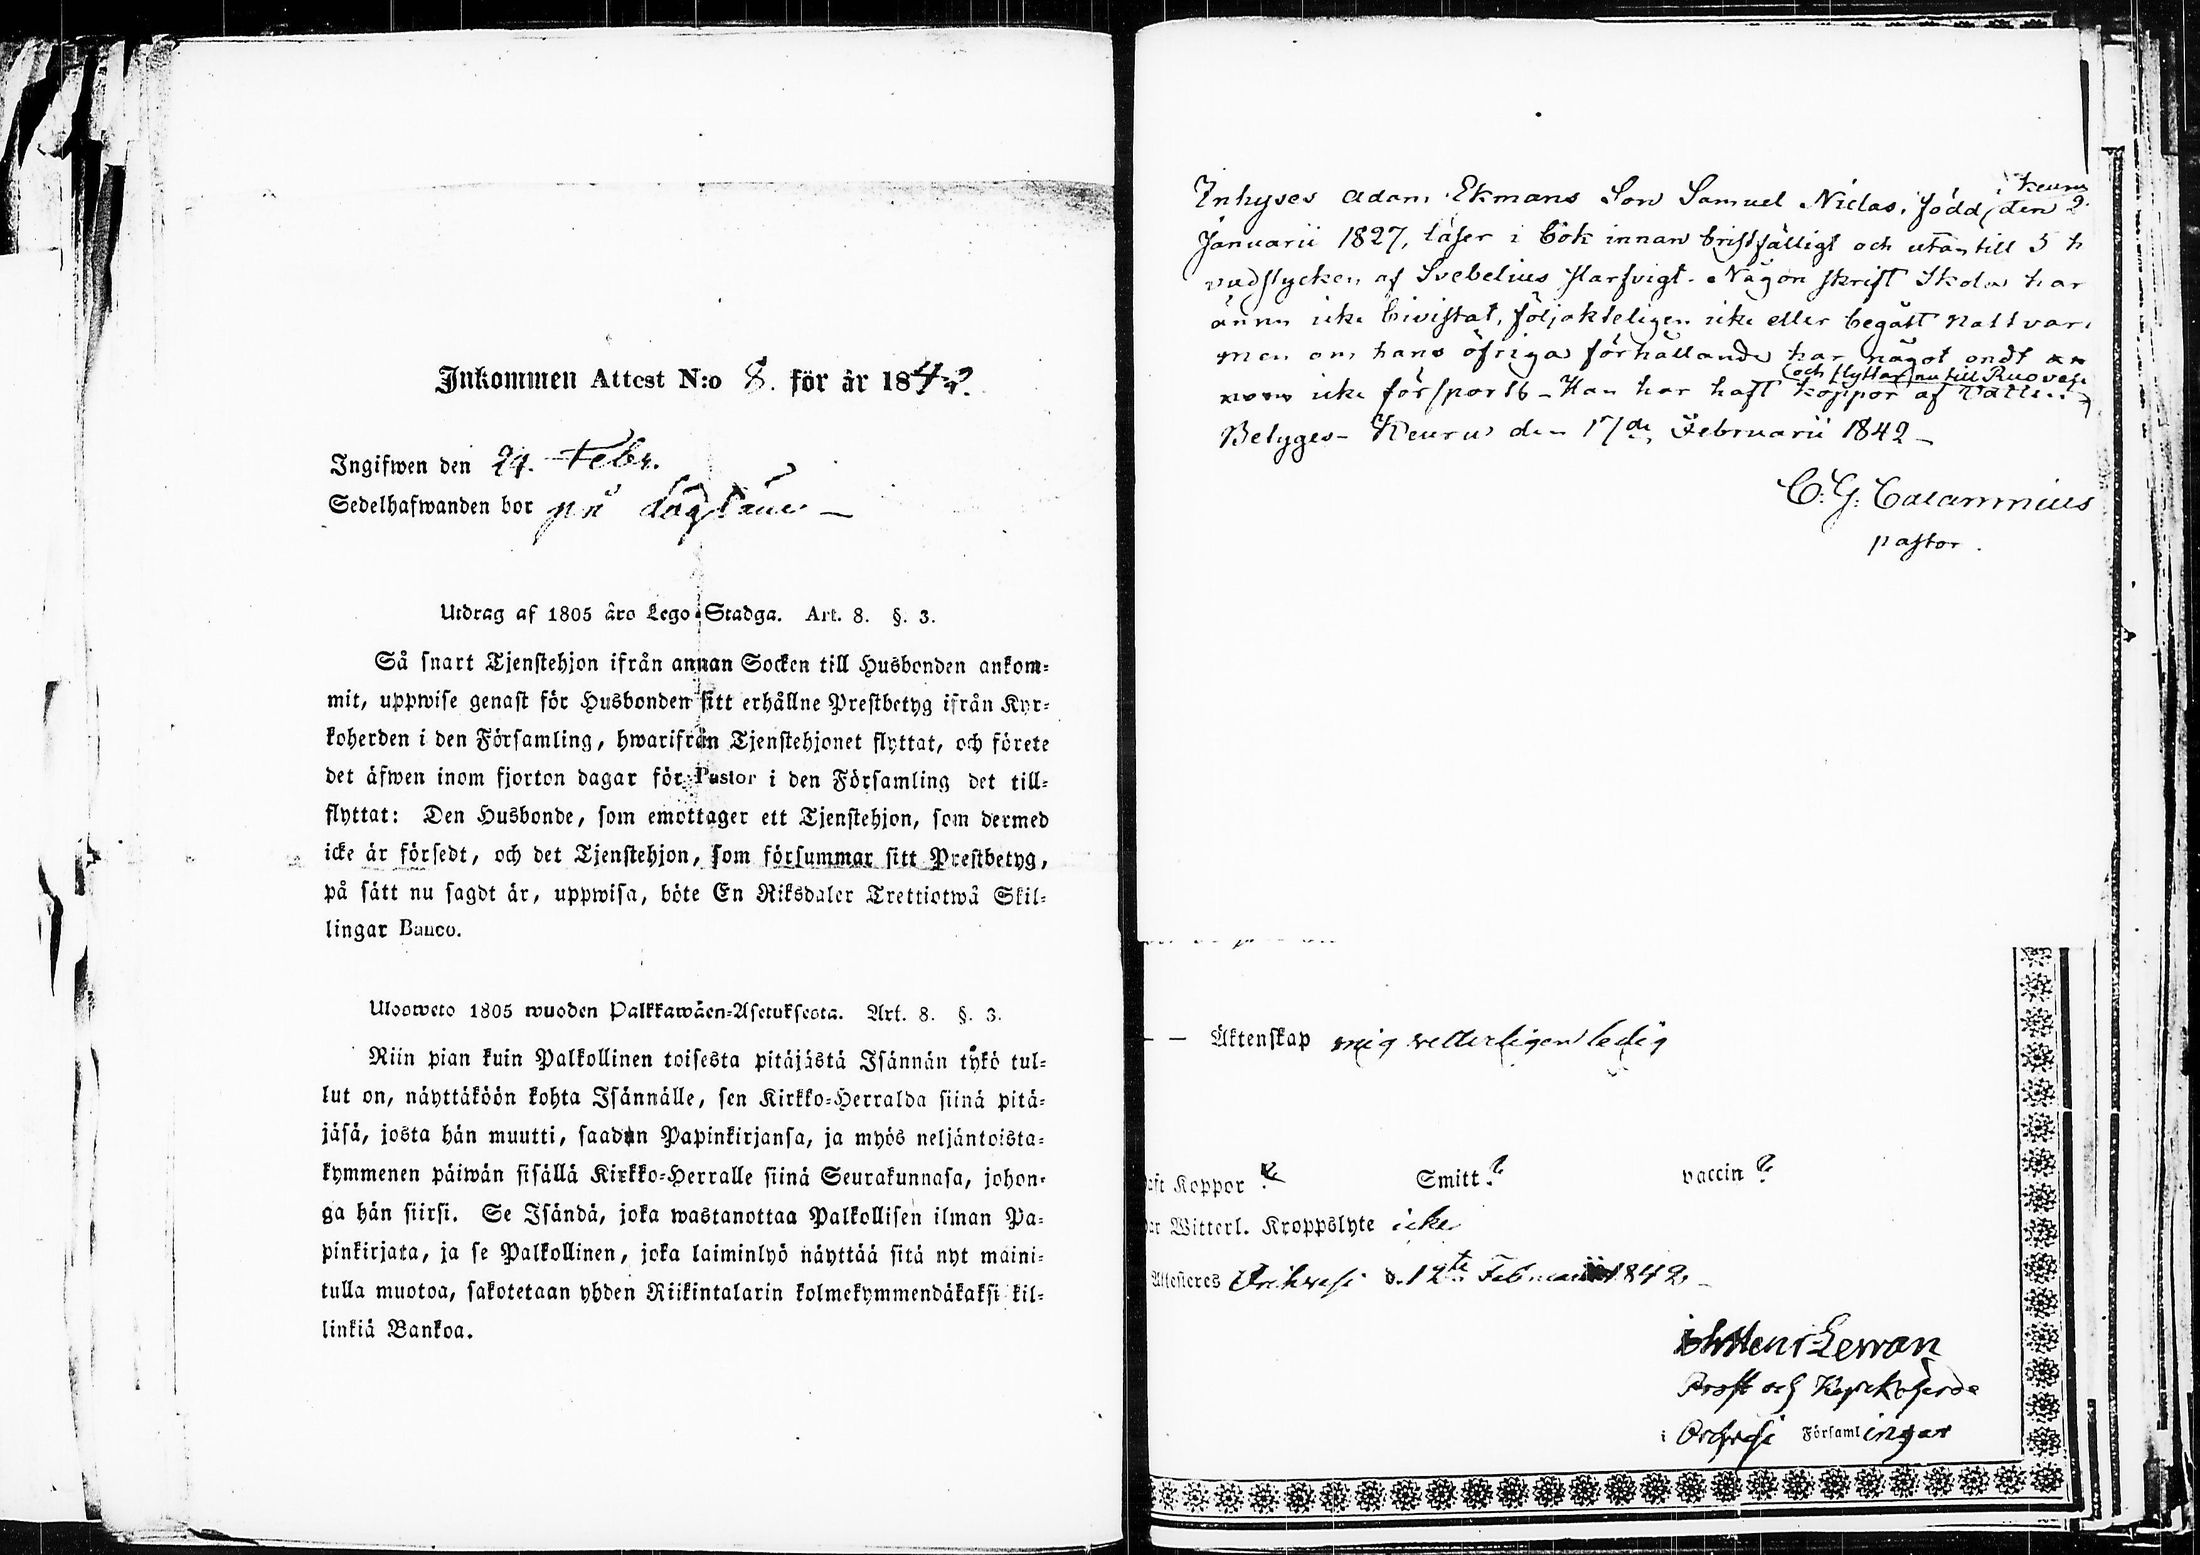 Inkommen Attest N:o 8. för år 1842.
Ingifwen den 24. Febr.
Sedelhafwanden bor på
Utdrag af 1805 års Lego-Stadga. Art. 8. §. 3.
Så snart Tjenstehjon ifrån annan Socken till Husbonden ankom-
mit, uppwise genast för Husbonden sitt erhållne Prestbetyg ifrån Kyr-
koherden i den Församling, hwarifrån Tjenstehjonet flyttat, och förete
det äfwen inom fjorton dagar för Pastor i den Församling det till-
flyttat: Den Husbonde, som emottager ett Tjenstehjon, som dermed
icke är försedt, och det Tjenstehjon, som försummar sitt Prestbetyg,
på sätt nu sagdt är, uppwisa, böte En Riksdaler Trettiotwå Skil-
lingar Banco.
Ulosweto 1805 wuoden Palkkawäen-Asetuksesta. Art. 8. §. 3.
Niin pian kuin Palkollinen toisesta pitäjästä Isännän tykö tul-
lut on, näyttäköön kohta Isännälle, sen Kirkko-Herralda siinä pitä-
jäsä, josta hän muutti, saadun Papinkirjansa, ja myös neljäntoista-
kymmenen päiwän sisällä Kirkko-Herralle siinä Seurakunnasa, johon-
ga hän siirsi. Se Isändä, joka wastanottaa Palkollisen ilman Pa-
pinkirjata, ja se Palkollinen, joka laiminlyö näyttää sitä nyt maini-
tulla muotoa, sakotetaan yhden Riikintalarin kolmekymmendäkaksi kil-
linkiä Bankoa.
i Keuru
Inhyses Adam Ekmans Son Samuel Niclas, född den 2
Januarii 1827, läser i bok innan bristfälligt och utantill 5 h
vudstycken af Svebelius slarfvigt. Någon skrift Skola har
ännu icke bivistat, följakteligen icke eller begått Nattvar
men om hans öfriga förhållande har något ondt
och flyttar nu till Ruovesi
icke försports - Han har haft koppor af
Betyges - Keuru den 17de Februarii 1842 -
C. G. Calamnius
pastor.
- - Äktenskap mig vetterligen ledig
aft Koppor ? Smitt ? vaccin ?
Witterl. Kroppslyte icke
Attesteres Orihvesi d. 12te Februarii 1842 -
Prost och Kyrkoherde
i Orihvesi Församlingar